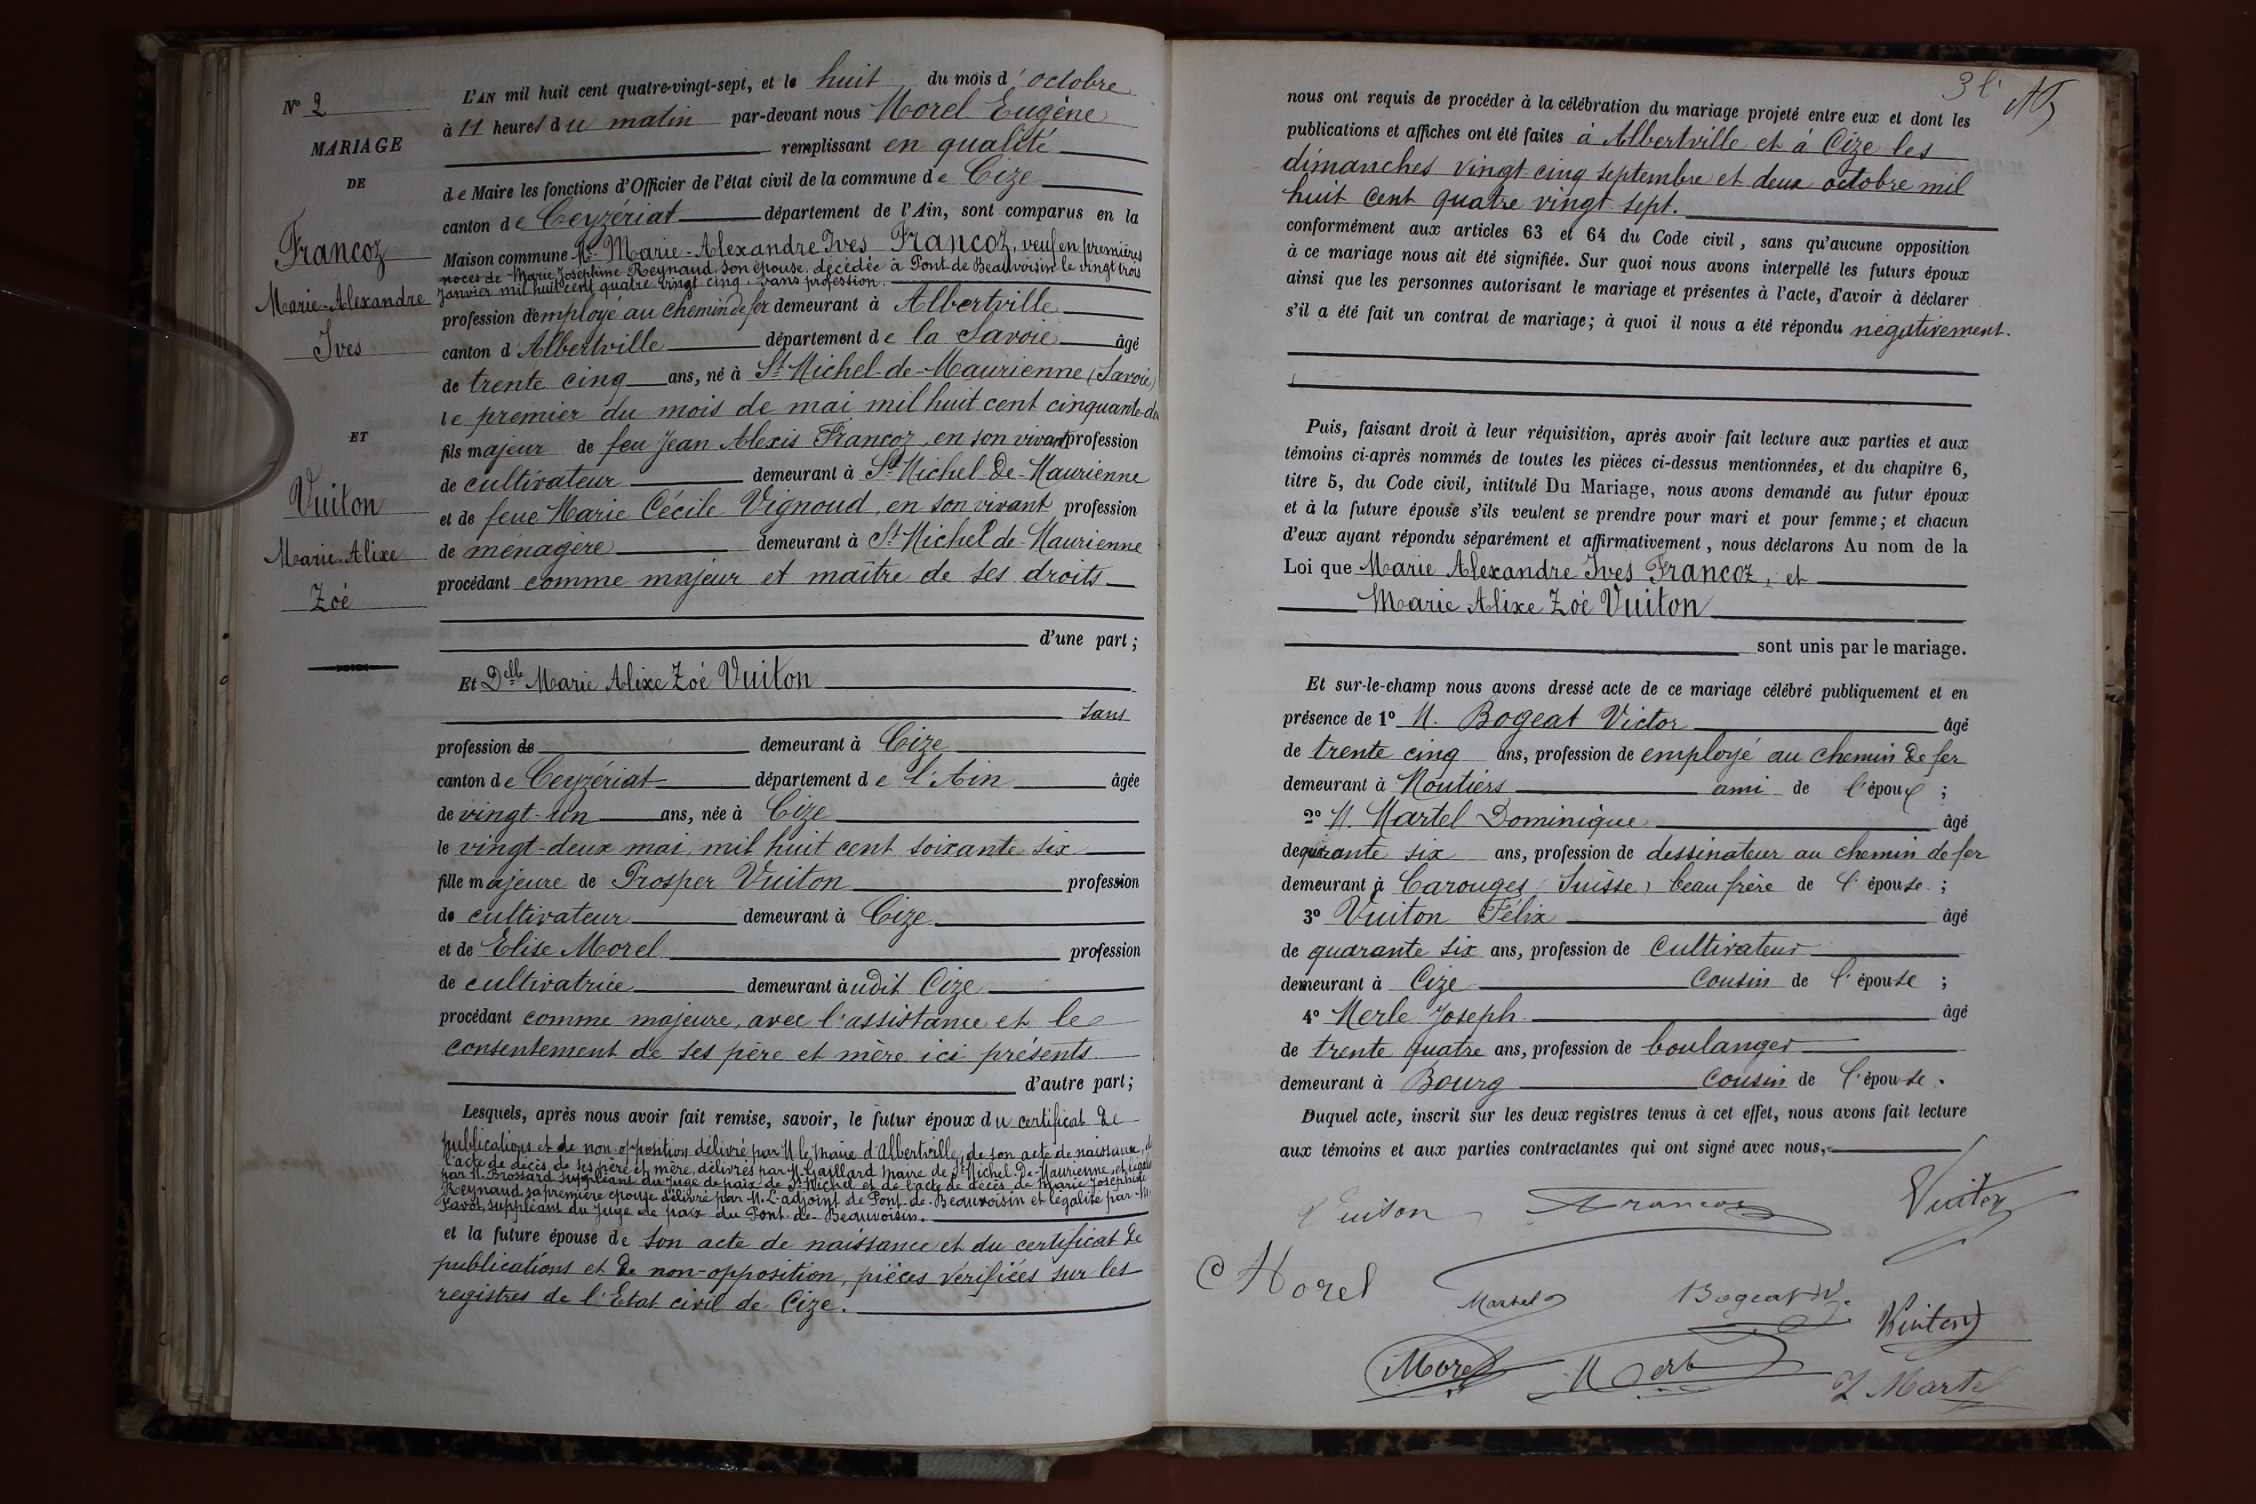 N° 2
MARIAGE
DE
Francoz
Marie-Alexandre
Ives
ET
Vuiton
Marie-Alixe
Zoé
L'AN mil huit cent quatre-vingt-sept, et le huit du mois d'octobre
à 11 heures du matin par-devant nous Morel Eugène
remplissant en qualité
de Maire les fonctions d'Officier de l'état civil de la commune de Cize
canton de Ceyzériat département de l'Ain, sont comparus en la
Maison commune Mr Marie-Alexandre Ives Francoz, veuf en premières
noces de Marie Joséphine Reynaud, son épouse, décédée à Pont-de-Beauvoisin le vingt trois
janvier mil huit cent quatre vingt cinq, sans profession.
profession d'employé au chemin de fer demeurant à Albertville
canton d'Albertville département de la Savoie âgé
de trente cinq ans, né à St Michel-de-Maurienne (Savoie)
le premier du mois de mai mil huit cent cinquante-de
fils majeur de feu Jean Alexis Francoz, en son vivant profession
de cultivateur demeurant à St Michel-de-Maurienne
et de feue Marie Cécile Vignoud, en son vivant profession
de ménagère demeurant à St Michel de Maurienne
procédant comme majeur et maître de ses droits
d'une part;
Et Delle Marie Alixe Zoé Vuiton
sans
profession de demeurant à Cize
canton de Ceyzériat département de l'Ain âgée
de vingt-un ans, née à Cize
le vingt-deux mai, mil huit cent soixante six
fille majeure de Prosper Vuiton profession
de cultivateur demeurant à Cize
et de Elise Morel profession
de cultivatrice demeurant àudit Cize
procédant comme majeure, avec l'assistance et le
consentement de ses père et mère ici présents
d'autre part;
Lesquels, après nous avoir fait remise, savoir, le futur époux du certificat de
publications et de non-opposition délivré par M le Maire d'Albertville, de son acte de naissance, d
l'acte de décès de ses père et mère, délivrés par M. Gaillard Maire de St Michel-de-Maurienne, et légal
par M. Brossard suppléant du Juge de paix de St Michel et de l'acte de décès de Marie Joséphine
Reynaud sa première épouse délivré par M. L'adjoint de Pont-de-Beauvoisin et légalisé par M.
Pavot, suppléant du Juge de paix du Pont-de-Beauvoisin.
et la future épouse de son acte de naissance et du certificat de
publications et de non-opposition, pièces vérifiées sur les
registres de l'Etat civil de Cize.
nous ont requis de procéder à la célébration du mariage projeté entre eux et dont les
publications et affiches ont été faites à Albertville et à Cize les
dimanches vingt-cinq septembre et deux octobre mil
huit cent quatre vingt sept.
conformément aux articles 63 et 64 du Code civil, sans qu'aucune opposition
à ce mariage nous ait été signifiée. Sur quoi nous avons interpellé les futurs époux
ainsi que les personnes autorisant le mariage et présentes à l'acte, d'avoir à déclarer
s'il a été fait un contrat de mariage; à quoi il nous a été répondu négativement.
Puis, faisant droit à leur réquisition, après avoir fait lecture aux parties et aux
témoins ci-après nommés de toutes les pièces ci-dessus mentionnées, et du chapitre 6,
titre 5, du Code civil, intitulé Du Mariage, nous avons demandé au futur époux
et à la future épouse s'ils veulent se prendre pour mari et pour femme; et chacun
d'eux ayant répondu séparément et affirmativement, nous déclarons Au nom de la
Loi que Marie Alexandre Ives Francoz, et
Marie Alixe Zoé Vuiton
sont unis par le mariage.
Et sur-le-champ nous avons dressé acte de ce mariage célébré publiquement et en
présence de 1° M. Bogeat Victor âgé
de trente cinq ans, profession de employé au chemin de fer
demeurant à Moutiers ami de l'époux ;
2° M. Martel Dominique âgé
de quarante six ans, profession de dessinateur au chemin de fer
demeurant à Carouges (Suisse) beau frère de l'épouse ;
3° Vuiton Félix âgé
de quarante six ans, profession de cultivateur
demeurant à Cize cousin de l'épouse ;
4° Merle Joseph âgé
de trente quatre ans, profession de boulanger
demeurant à Bourg cousin de l'épouse.
Duquel acte, inscrit sur les deux registres tenus à cet effet, nous avons fait lecture
aux témoins et aux parties contractantes qui ont signé avec nous,
Vuiton Francoz Vuiton
Morel
Martel Bogeat V. Vuiton
Morel Z Martel